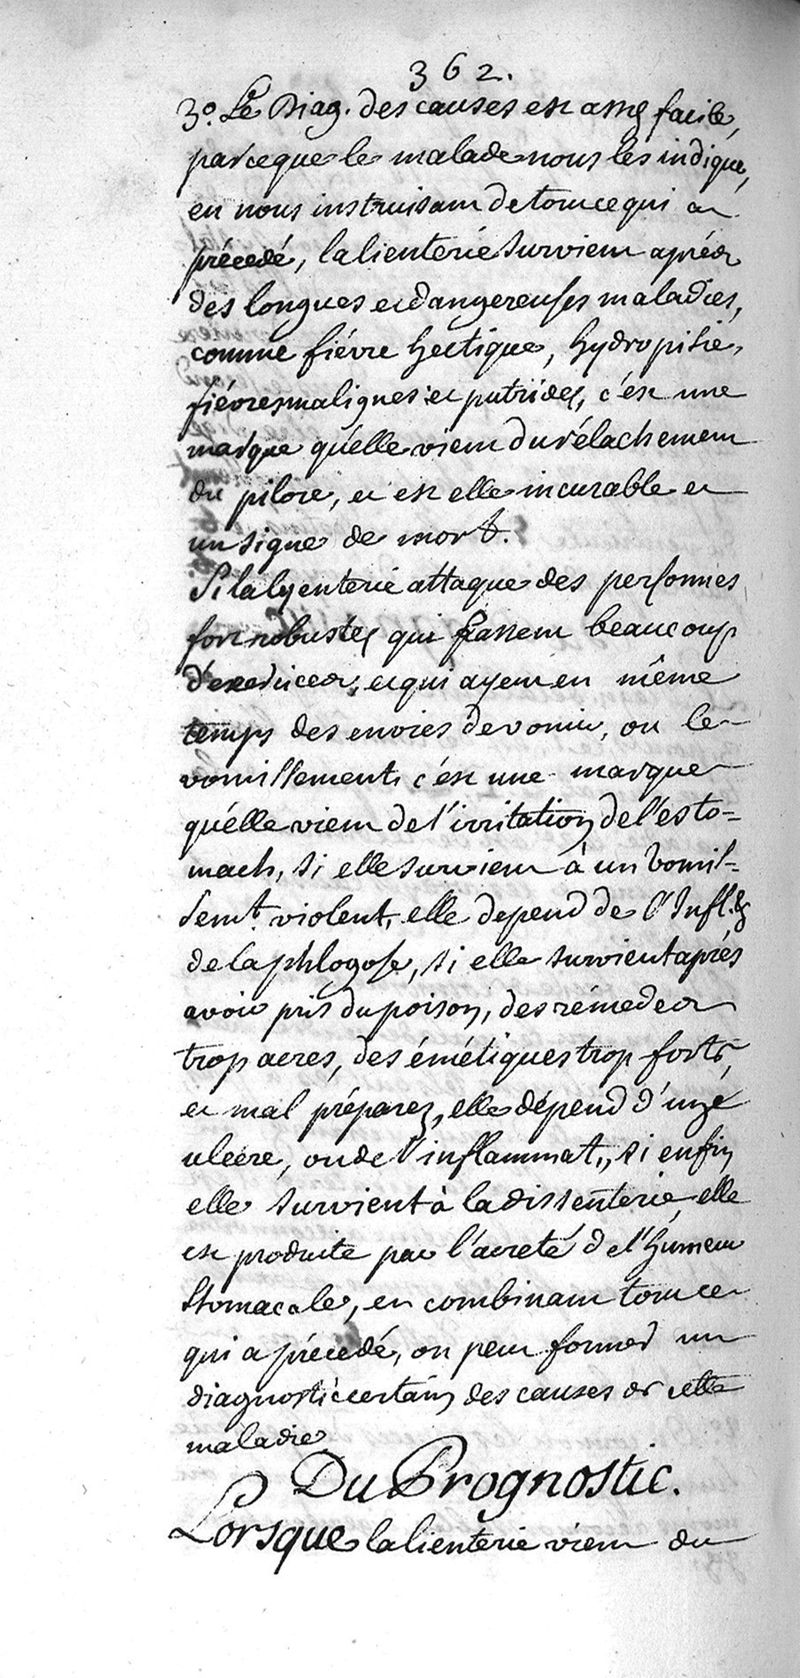 362.
3.° Le Diag. des causes est assés facile,
parceque le malade nous les indique,
en nous instruisant de tout ce qui a
précedé, la lienterie survient aprés
des longues et dangereuses maladies,
comme fiévre hectique, hydropisie,
fiévres malignes et putrides, c'est une
marque qu'elle vient du rélachement
du pilore, et est elle incurable et
un signe de mort.
Si la lyenterie attaque des personnes
fort robustes qui fassent beaucoup
d'exercices, et qui ayent en même
temps des envies de vomir, ou le
vomissement, c'est une marque
qu'elle vient de l'irritation de l'esto=
mach, si elle survient à un vomis=
semt. violent, elle depend de l'Infl. &
de la phlogose, si elle survient aprés
avoir pris du poison, des rémedes
trop acres, des émétiques trop forts,
et mal préparez, elle dépend d'une
ulcere, ou de l'inflammat., si enfin
elle survient à la dissenterie, elle
est produite par l'acreté de l'humeur
stomacale, en combinant tout ce
qui a précedé, on peut former un
diagnostic certain des causes de cette
maladie
Du Prognostic.
Lorsque la lienterie vient du